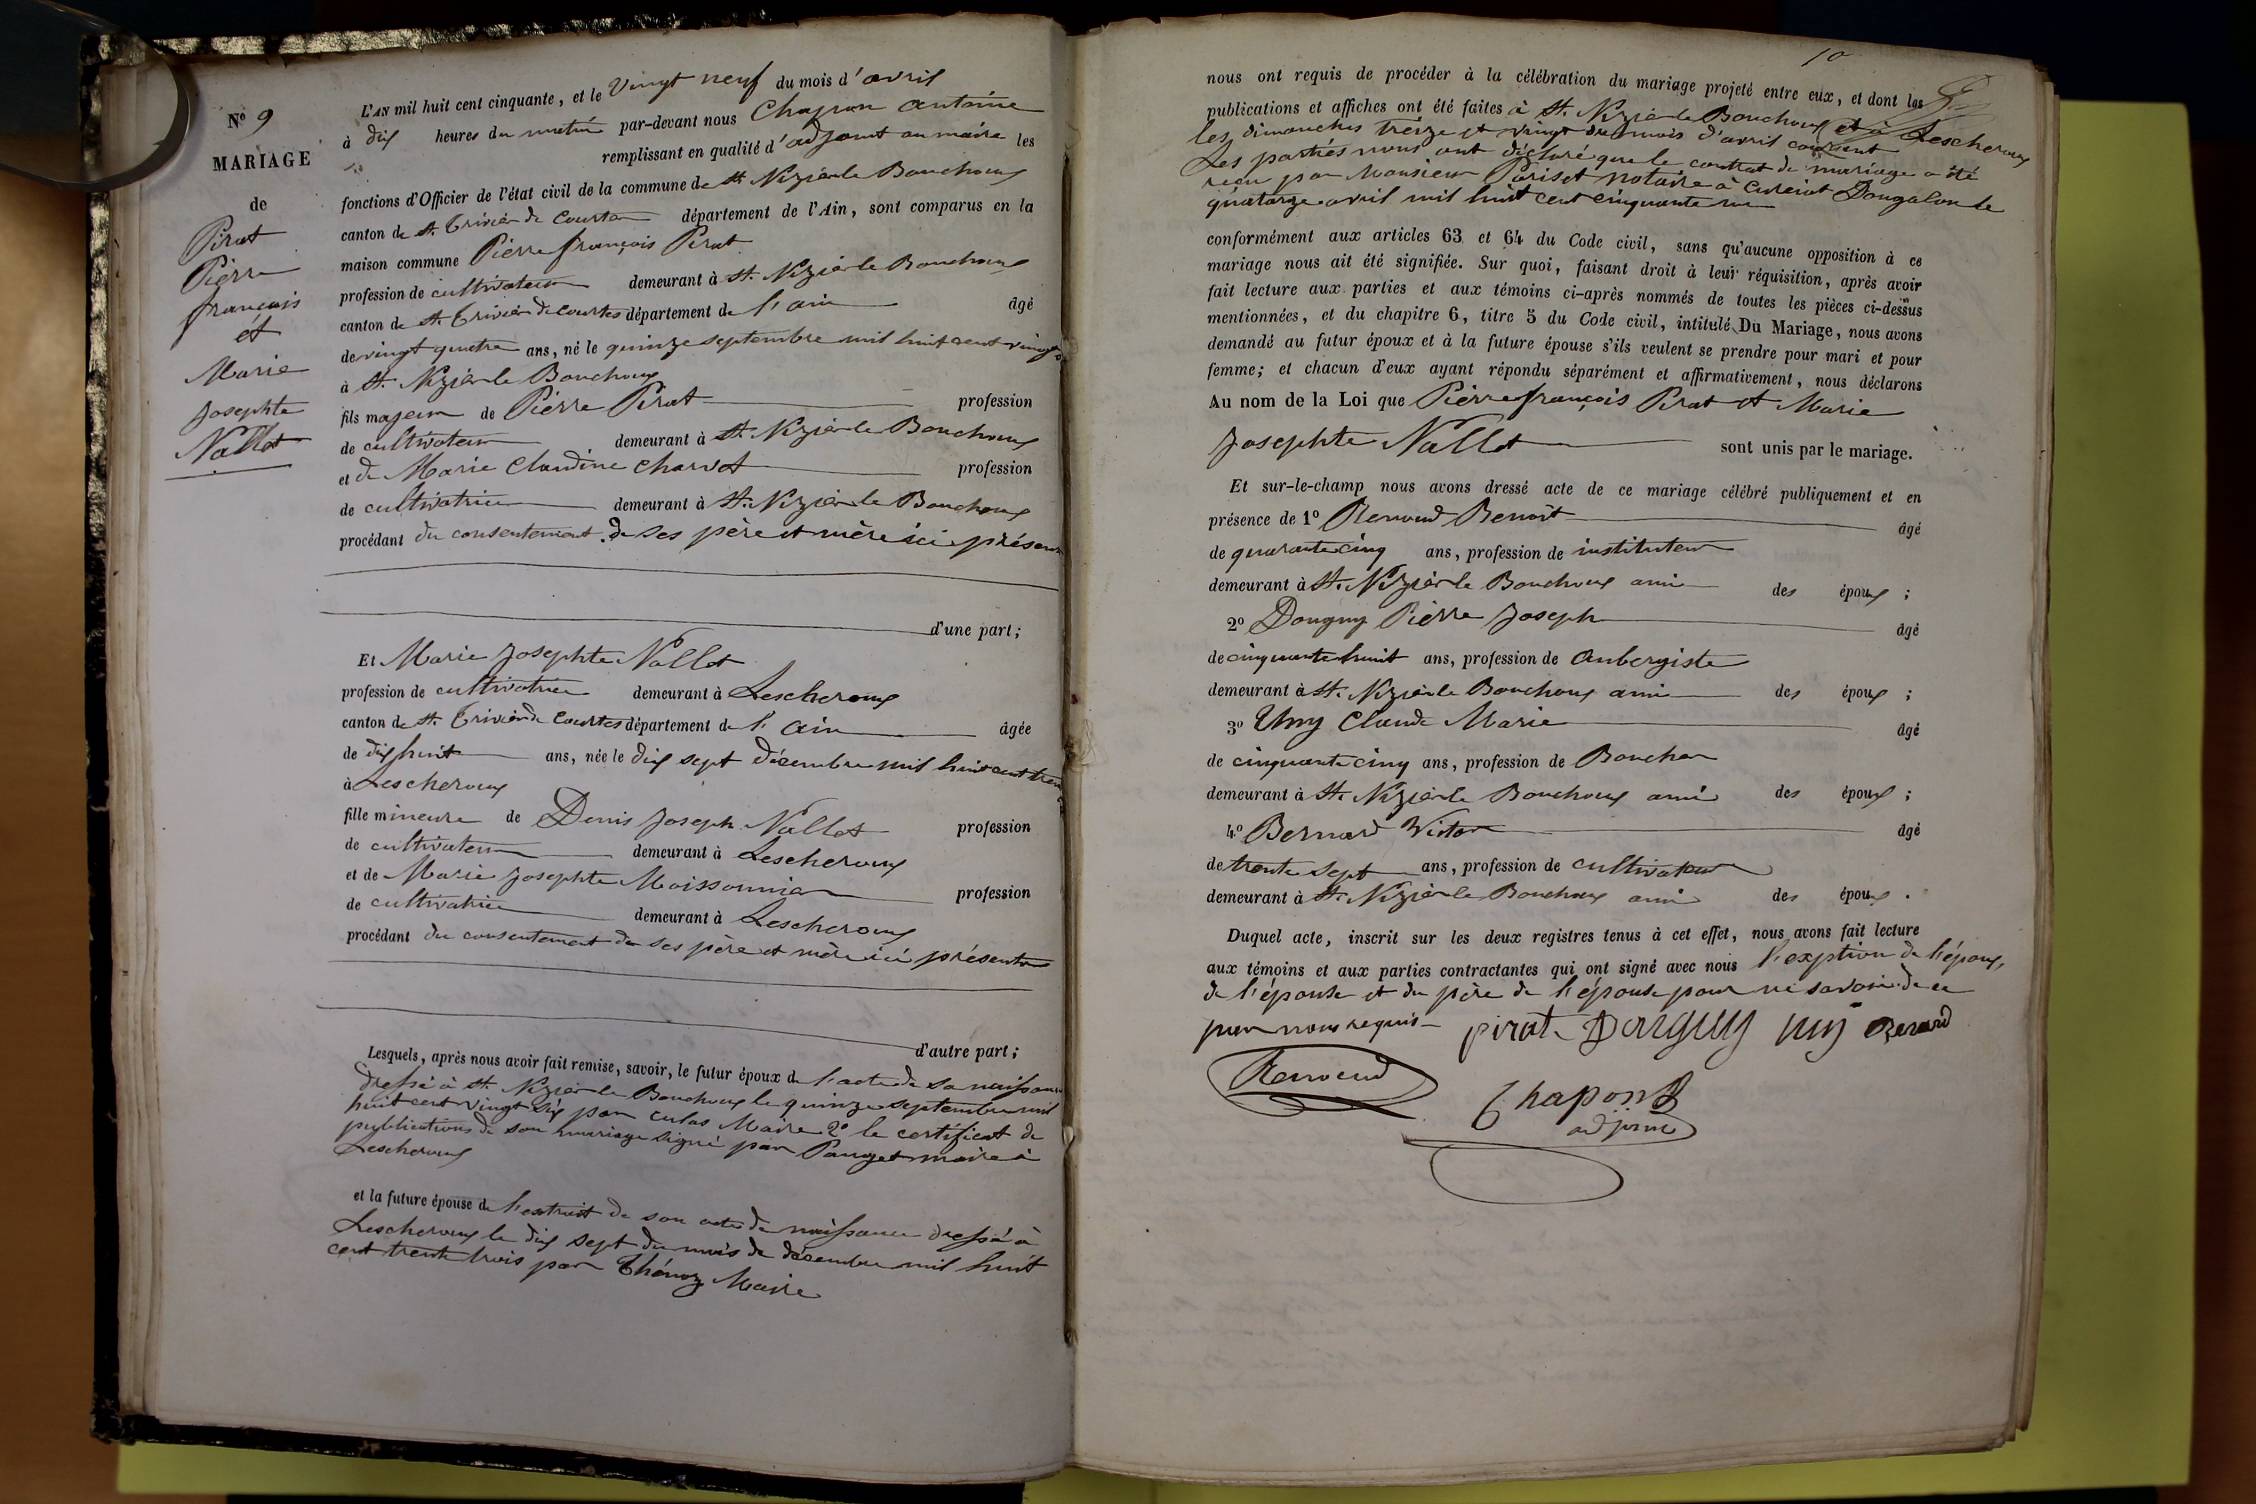 N° 9
MARIAGE
de
Pirat
Pierre
françois
et
Marie
Josephte
Nallet
L'AN mil huit cent cinquante, et le Vingt neuf du mois d'avril
à dix heures du matin par-devant nous Chapon antoine
remplissant en qualité d'adjoint au maire les
fonctions d'Officier de l'état civil de la commune de St. Nizier le Bouchoux
canton de St. Trivier de Courtes département de l'Ain, sont comparus en la
maison commune Pierre françois Pirat
profession de cultivateur demeurant à St. Nizier le Bouchoux
canton de St. Trivier de Courtes département de l'ain âgé
de vingt quatre ans, né le quinze septembre mil huit cent vingt
à St. Nizier le Bouchoux
fils majeur de Pierre Pirat profession
de cultivateur demeurant à St. Nizier le Bouchoux
et de Marie Claudine Charvet profession
de cultivatrice demeurant à St. Nizier le Bouchoux
procédant du consentement de ses père et mère ici présents
d'une part;
Et Marie Josephte Nallet
profession de cultivatrice demeurant à Lescheroux
canton de St. Trivier de Courtes département de l'ain âgée
de dix huit ans, née le dix sept Décembre mil huit cent trente
à Lescheroux
fille mineure de Denis Joseph Nallet profession
de cultivateur demeurant à Lescheroux
et de Marie Josephte Moissonnier profession
de cultivatrice demeurant à Lescheroux
procédant du consentement de ses père et mère ici présents
d'autre part;
Lesquels, après nous avoir fait remise, savoir, le futur époux de l'acte de sa naissance
dressé à St. Nizier le Bouchoux le quinze septembre mil
huit cent vingt six par Culas Maire 2° le certificat de
publications de son mariage signé par Pauget maire à
Lescheroux
et la future épouse de l'extrait de son acte de naissance dressé à
Lescheroux le dix sept du mois de décembre mil huit
cent trente trois par Thénoz Maire
10
nous ont requis de procéder à la célébration du mariage projeté entre eux, et dont les
publications et affiches ont été faites à St. Nizier le Bouchoux et à Lescheroux
les dimanches treize et vingt du mois d'avril courent
Les parties nous ont déclaré que le contrat de mariage a été
reçu par Monsieur Pariset notaire à Curciat Dongalon le
quatorze avril mil huit cent cinquante
conformément aux articles 63 et 64 du Code civil, sans qu'aucune opposition à ce
mariage nous ait été signifiée. Sur quoi, faisant droit à leur réquisition, après avoir
fait lecture aux parties et aux témoins ci-après nommés de toutes les pièces ci-dessus
mentionnées, et du chapitre 6, titre 5 du Code civil, intitulé Du Mariage, nous avons
demandé au futur époux et à la future épouse s'ils veulent se prendre pour mari et pour
femme; et chacun d'eux ayant répondu séparément et affirmativement, nous déclarons
Au nom de la Loi que Pierre françois Pirat et Marie
Josephte Nallet sont unis par le mariage.
Et sur-le-champ nous avons dressé acte de ce mariage célébré publiquement et en
présence de 1° Renoud Benoit âgé
de quarante cinq ans, profession de instituteur
demeurant à St. Nizier le Bouchoux ami des époux ;
2° Donguy Pierre Joseph âgé
de cinquante huit ans, profession de Aubergiste
demeurant à St. Nizier le Bouchoux ami des époux ;
3° Uny Claude Marie âgé
de cinquante cinq ans, profession de Boucher
demeurant à St. Nizier le Bouchoux ami des époux ;
4° Bernard Victor âgé
de trente sept ans, profession de cultivateur
demeurant à St. Nizier le Bouchoux ami des époux .
Duquel acte, inscrit sur les deux registres tenus à cet effet, nous avons fait lecture
aux témoins et aux parties contractantes qui ont signé avec nous l'exption de l'époux,
de l'épouse et du père de l'épouse pour ne savoir de ce
par nous requis pirat Donguy uny Berard
Renoud
Chapon
adjoint